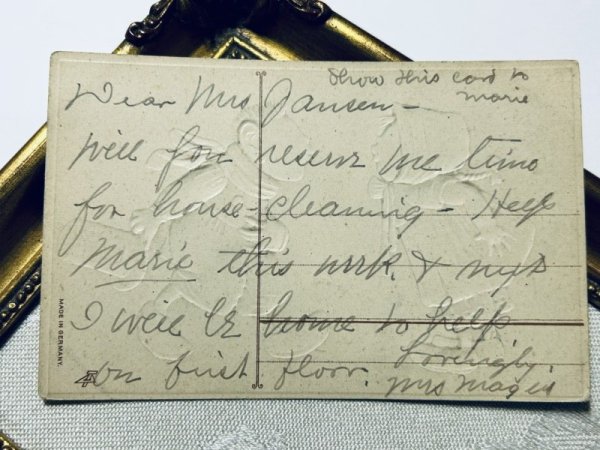 Show this card to
Marie
Dear Mrs Jansen -
Will you reserve me time
for house-cleaning - Help
Marie this work & next
I will be home to help
on first floor.
Lovingly
Mrs
MADE IN GERMANY.